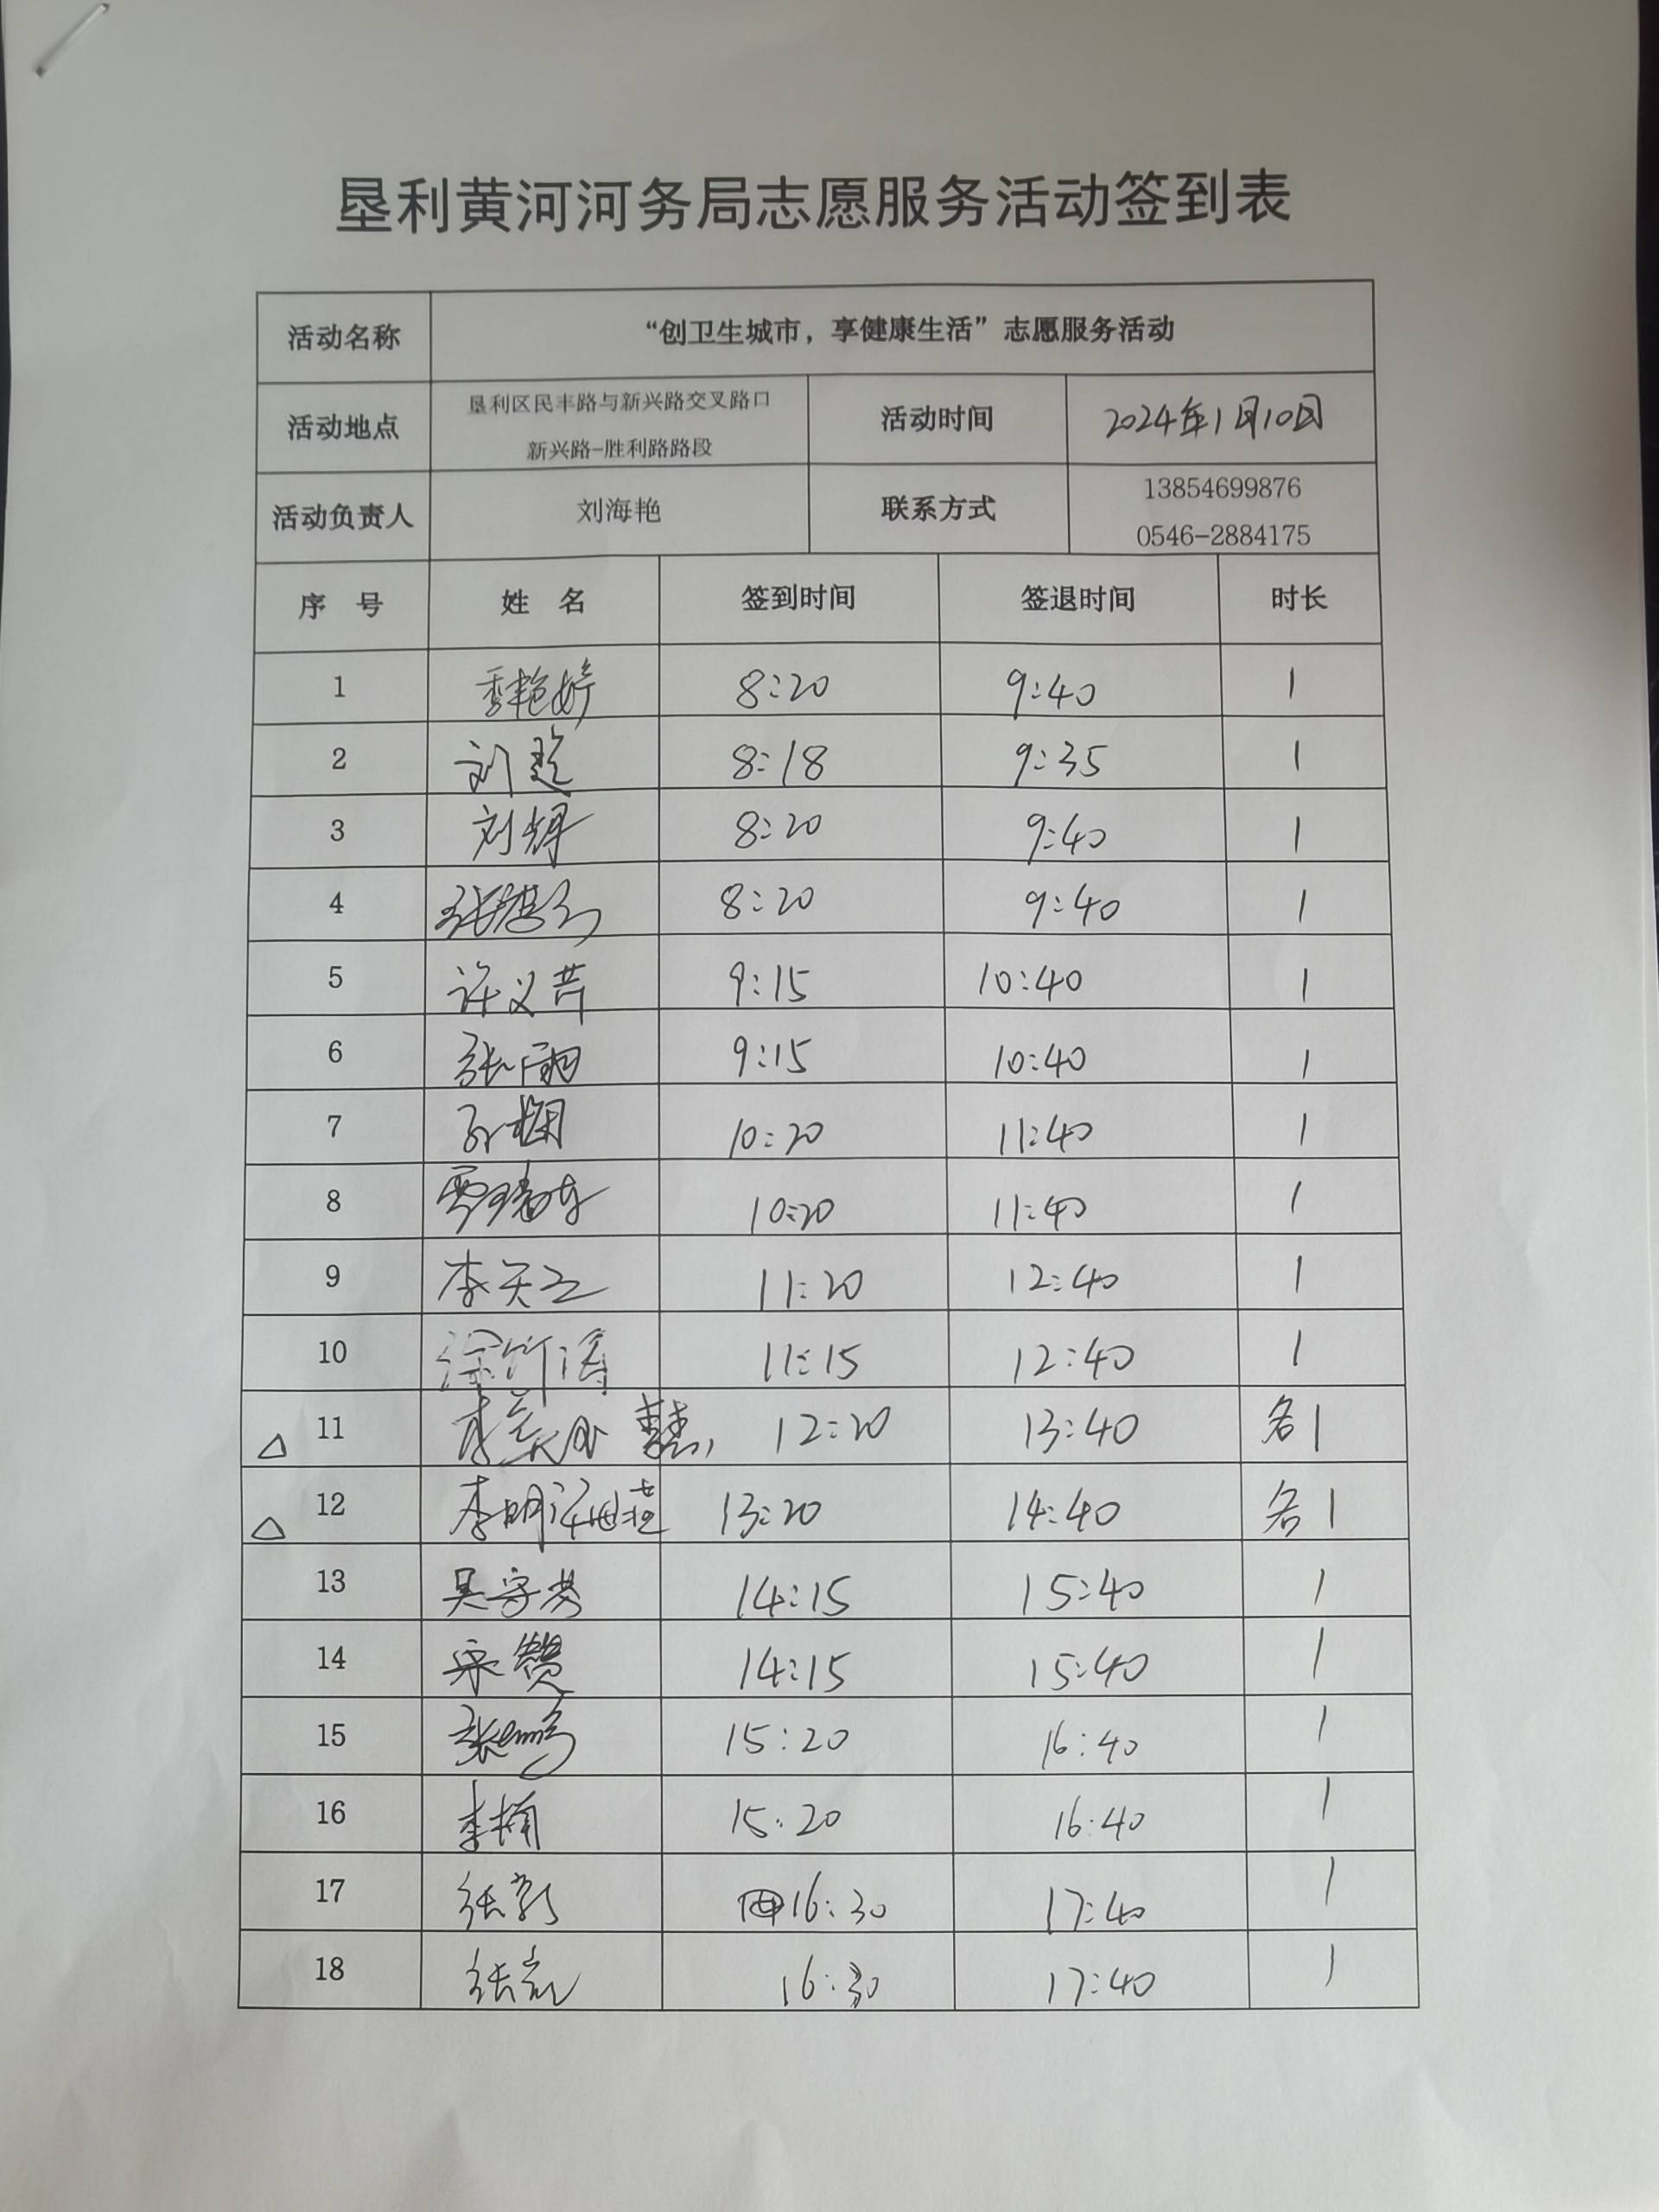 垦利黄河河务局志愿服务活动签到表
活动名称 “创卫生城市，享健康生活”志愿服务活动
活动地点 垦利区民丰路与新兴路交叉路口
新兴路-胜利路路段
活动时间 2024年1月10日
活动负责人 刘海艳 联系方式 13854699876
0546-2884175
序 号 姓 名 签到时间 签退时间 时长
1 8:20 9:40 1
2 刘 8:18 9:35 1
3 刘辉 8:20 9:40 1
4 张 8:20 9:40 1
5 许义芹 9:15 10:40 1
6 张雨 9:15 10:40 1
7 10:20 11:40 1
8 10:20 11:40 1
9 李天 11:20 12:40 1
10 徐竹涛 11:15 12:40 1
△ 11 12:20 13:40 各1
△ 12 李明 13:20 14:40 各1
13 吴守 14:15 15:40 1
14 宋赞 14:15 15:40 1
15 张鹏 15:20 16:40 1
16 李楠 15:20 16:40 1
17 张 16:30 17:40 1
18 张 16:30 17:40 1